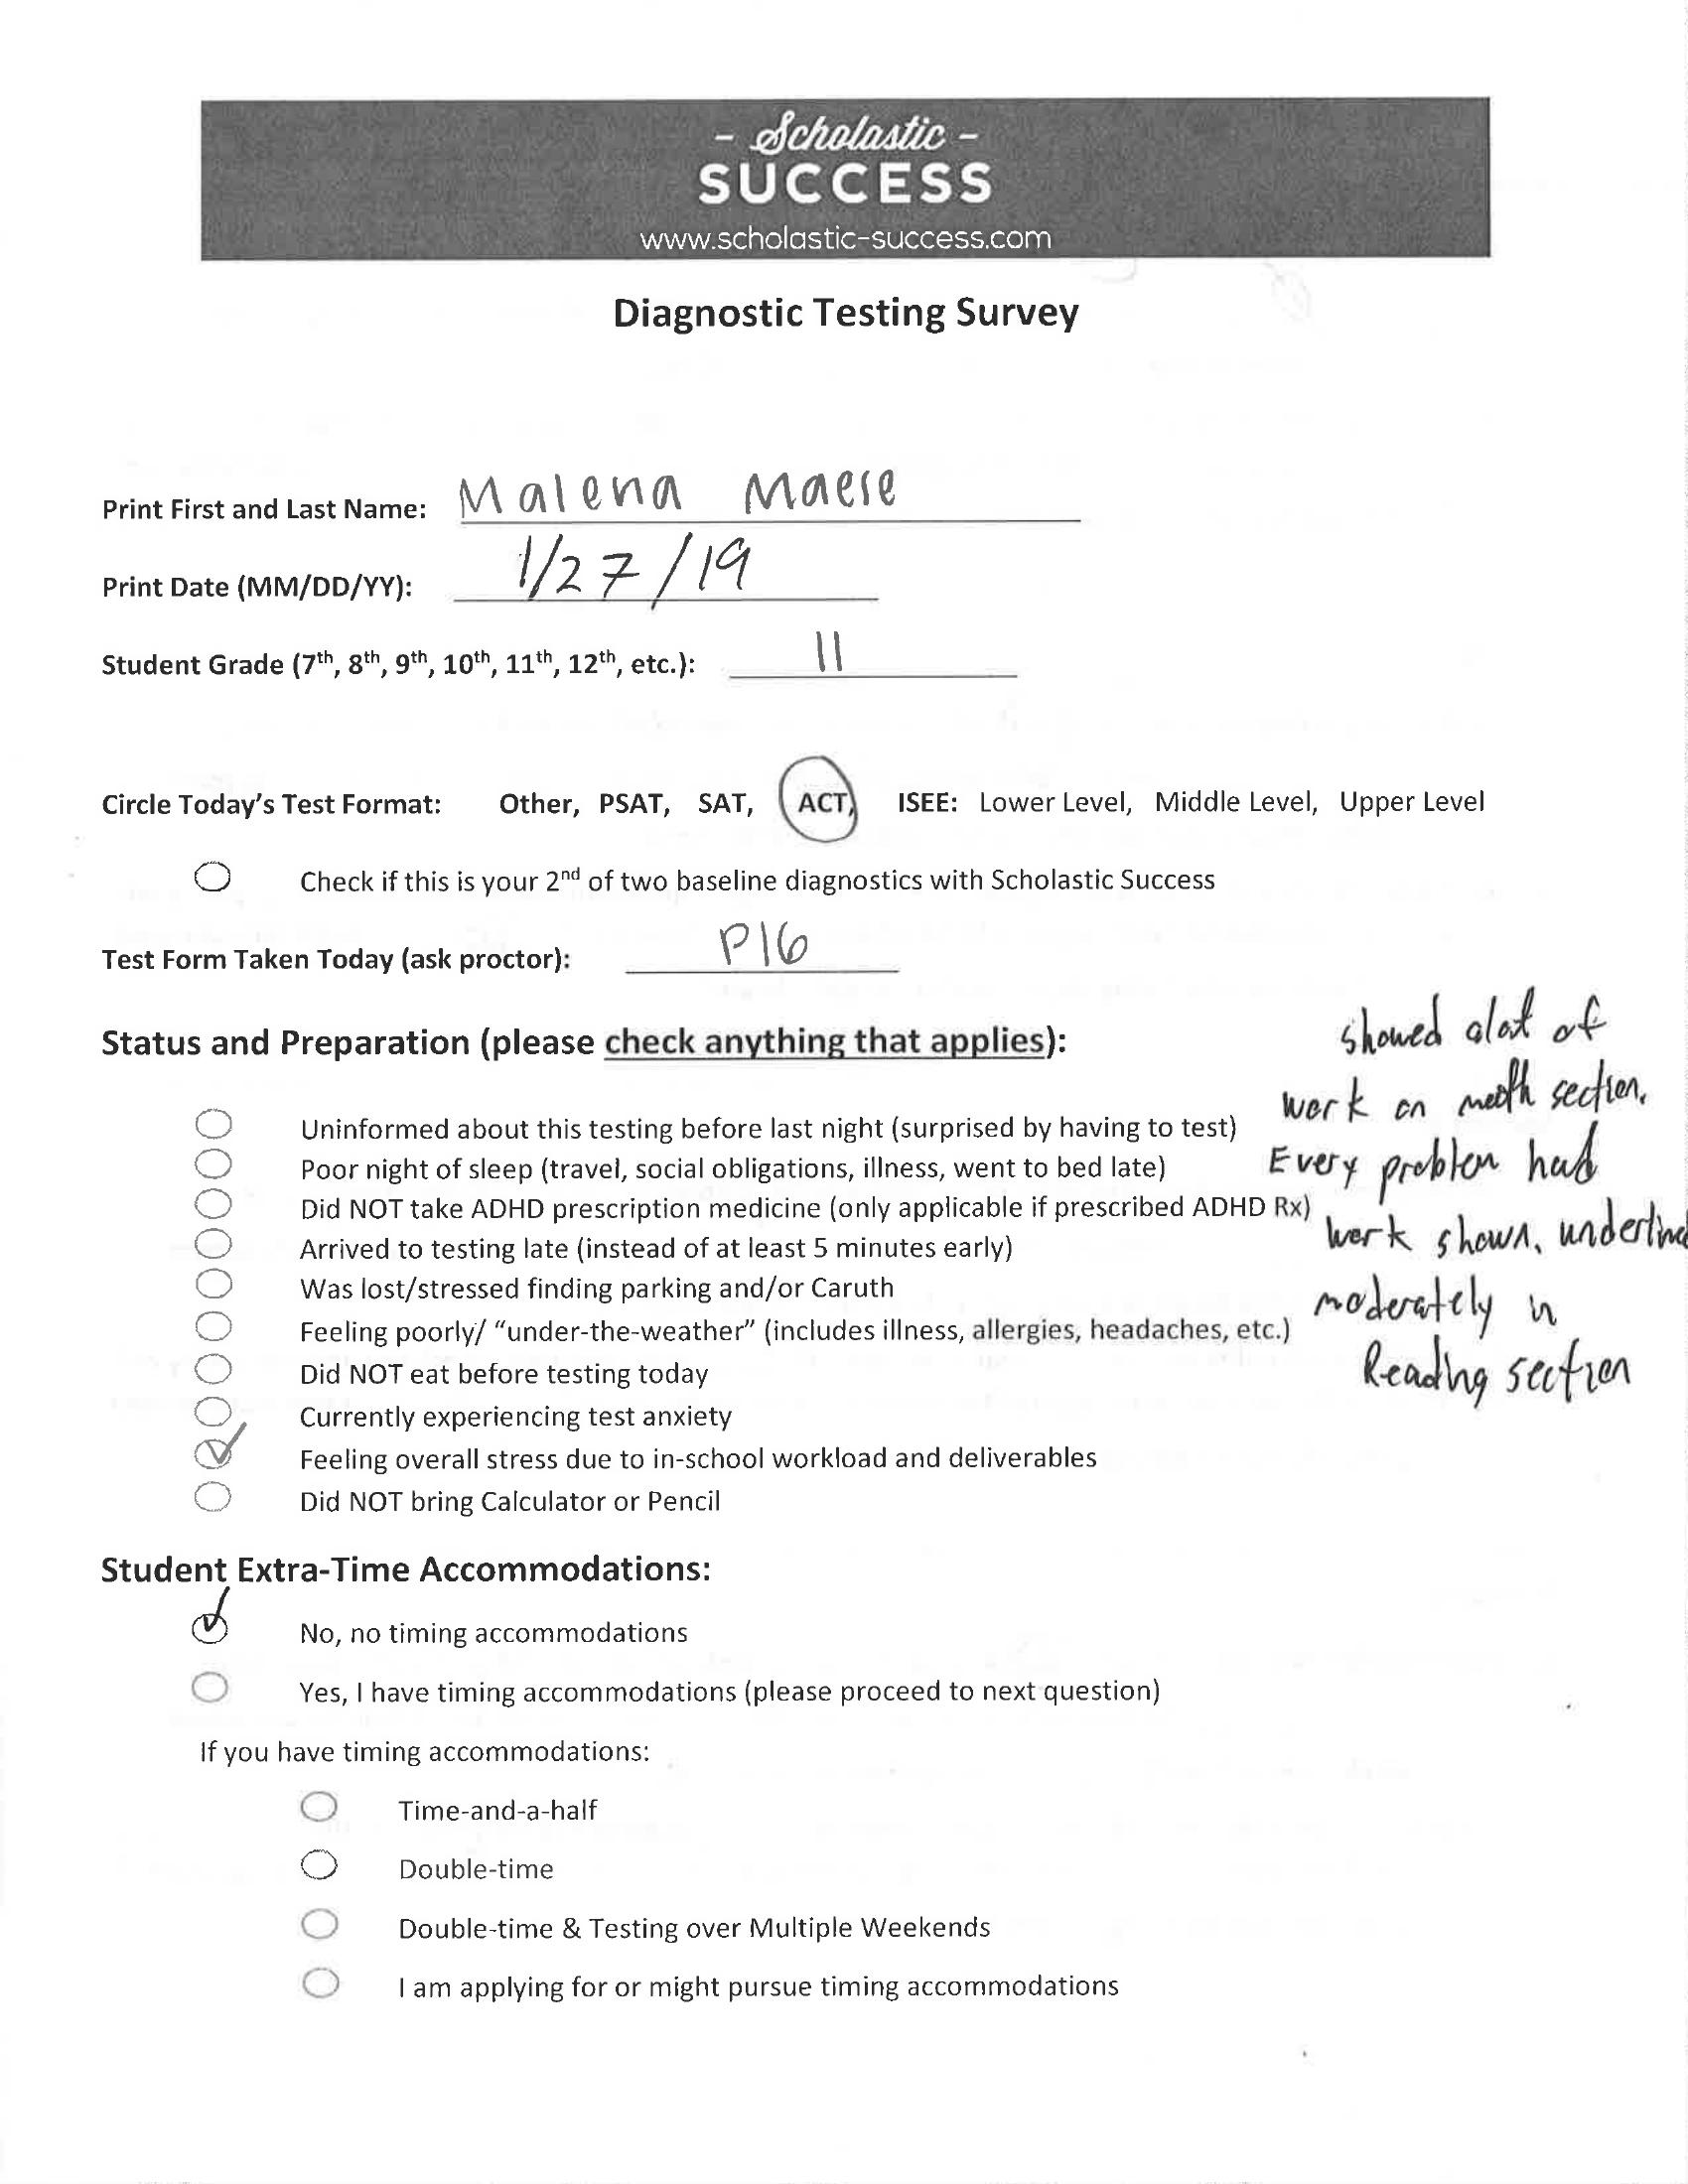 - Scholastic -
SUCCESS
www.scholastic-success.com
Diagnostic Testing Survey
Print First and Last Name: Malena Maese
Print Date (MM/DD/YY): 1/27/19
Student Grade (7th, 8th, 9th, 10th, 11th, 12th, etc.): 11
Circle Today's Test Format: Other, PSAT, SAT, ACT, ISEE: Lower Level, Middle Level, Upper Level
Check if this is your 2nd of two baseline diagnostics with Scholastic Success
Test Form Taken Today (ask proctor): P16
Status and Preparation (please check anything that applies):
showed alot of
work on math section.
Every problem had
work shown. underlined
moderately in
Reading section
Uninformed about this testing before last night (surprised by having to test)
Poor night of sleep (travel, social obligations, illness, went to bed late)
Did NOT take ADHD prescription medicine (only applicable if prescribed ADHD Rx)
Arrived to testing late (instead of at least 5 minutes early)
Was lost/stressed finding parking and/or Caruth
Feeling poorly/ "under-the-weather" (includes illness, allergies, headaches, etc.)
Did NOT eat before testing today
Currently experiencing test anxiety
Feeling overall stress due to in-school workload and deliverables
Did NOT bring Calculator or Pencil
Student Extra-Time Accommodations:
No, no timing accommodations
Yes, I have timing accommodations (please proceed to next question)
If you have timing accommodations:
Time-and-a-half
Double-time
Double-time & Testing over Multiple Weekends
I am applying for or might pursue timing accommodations